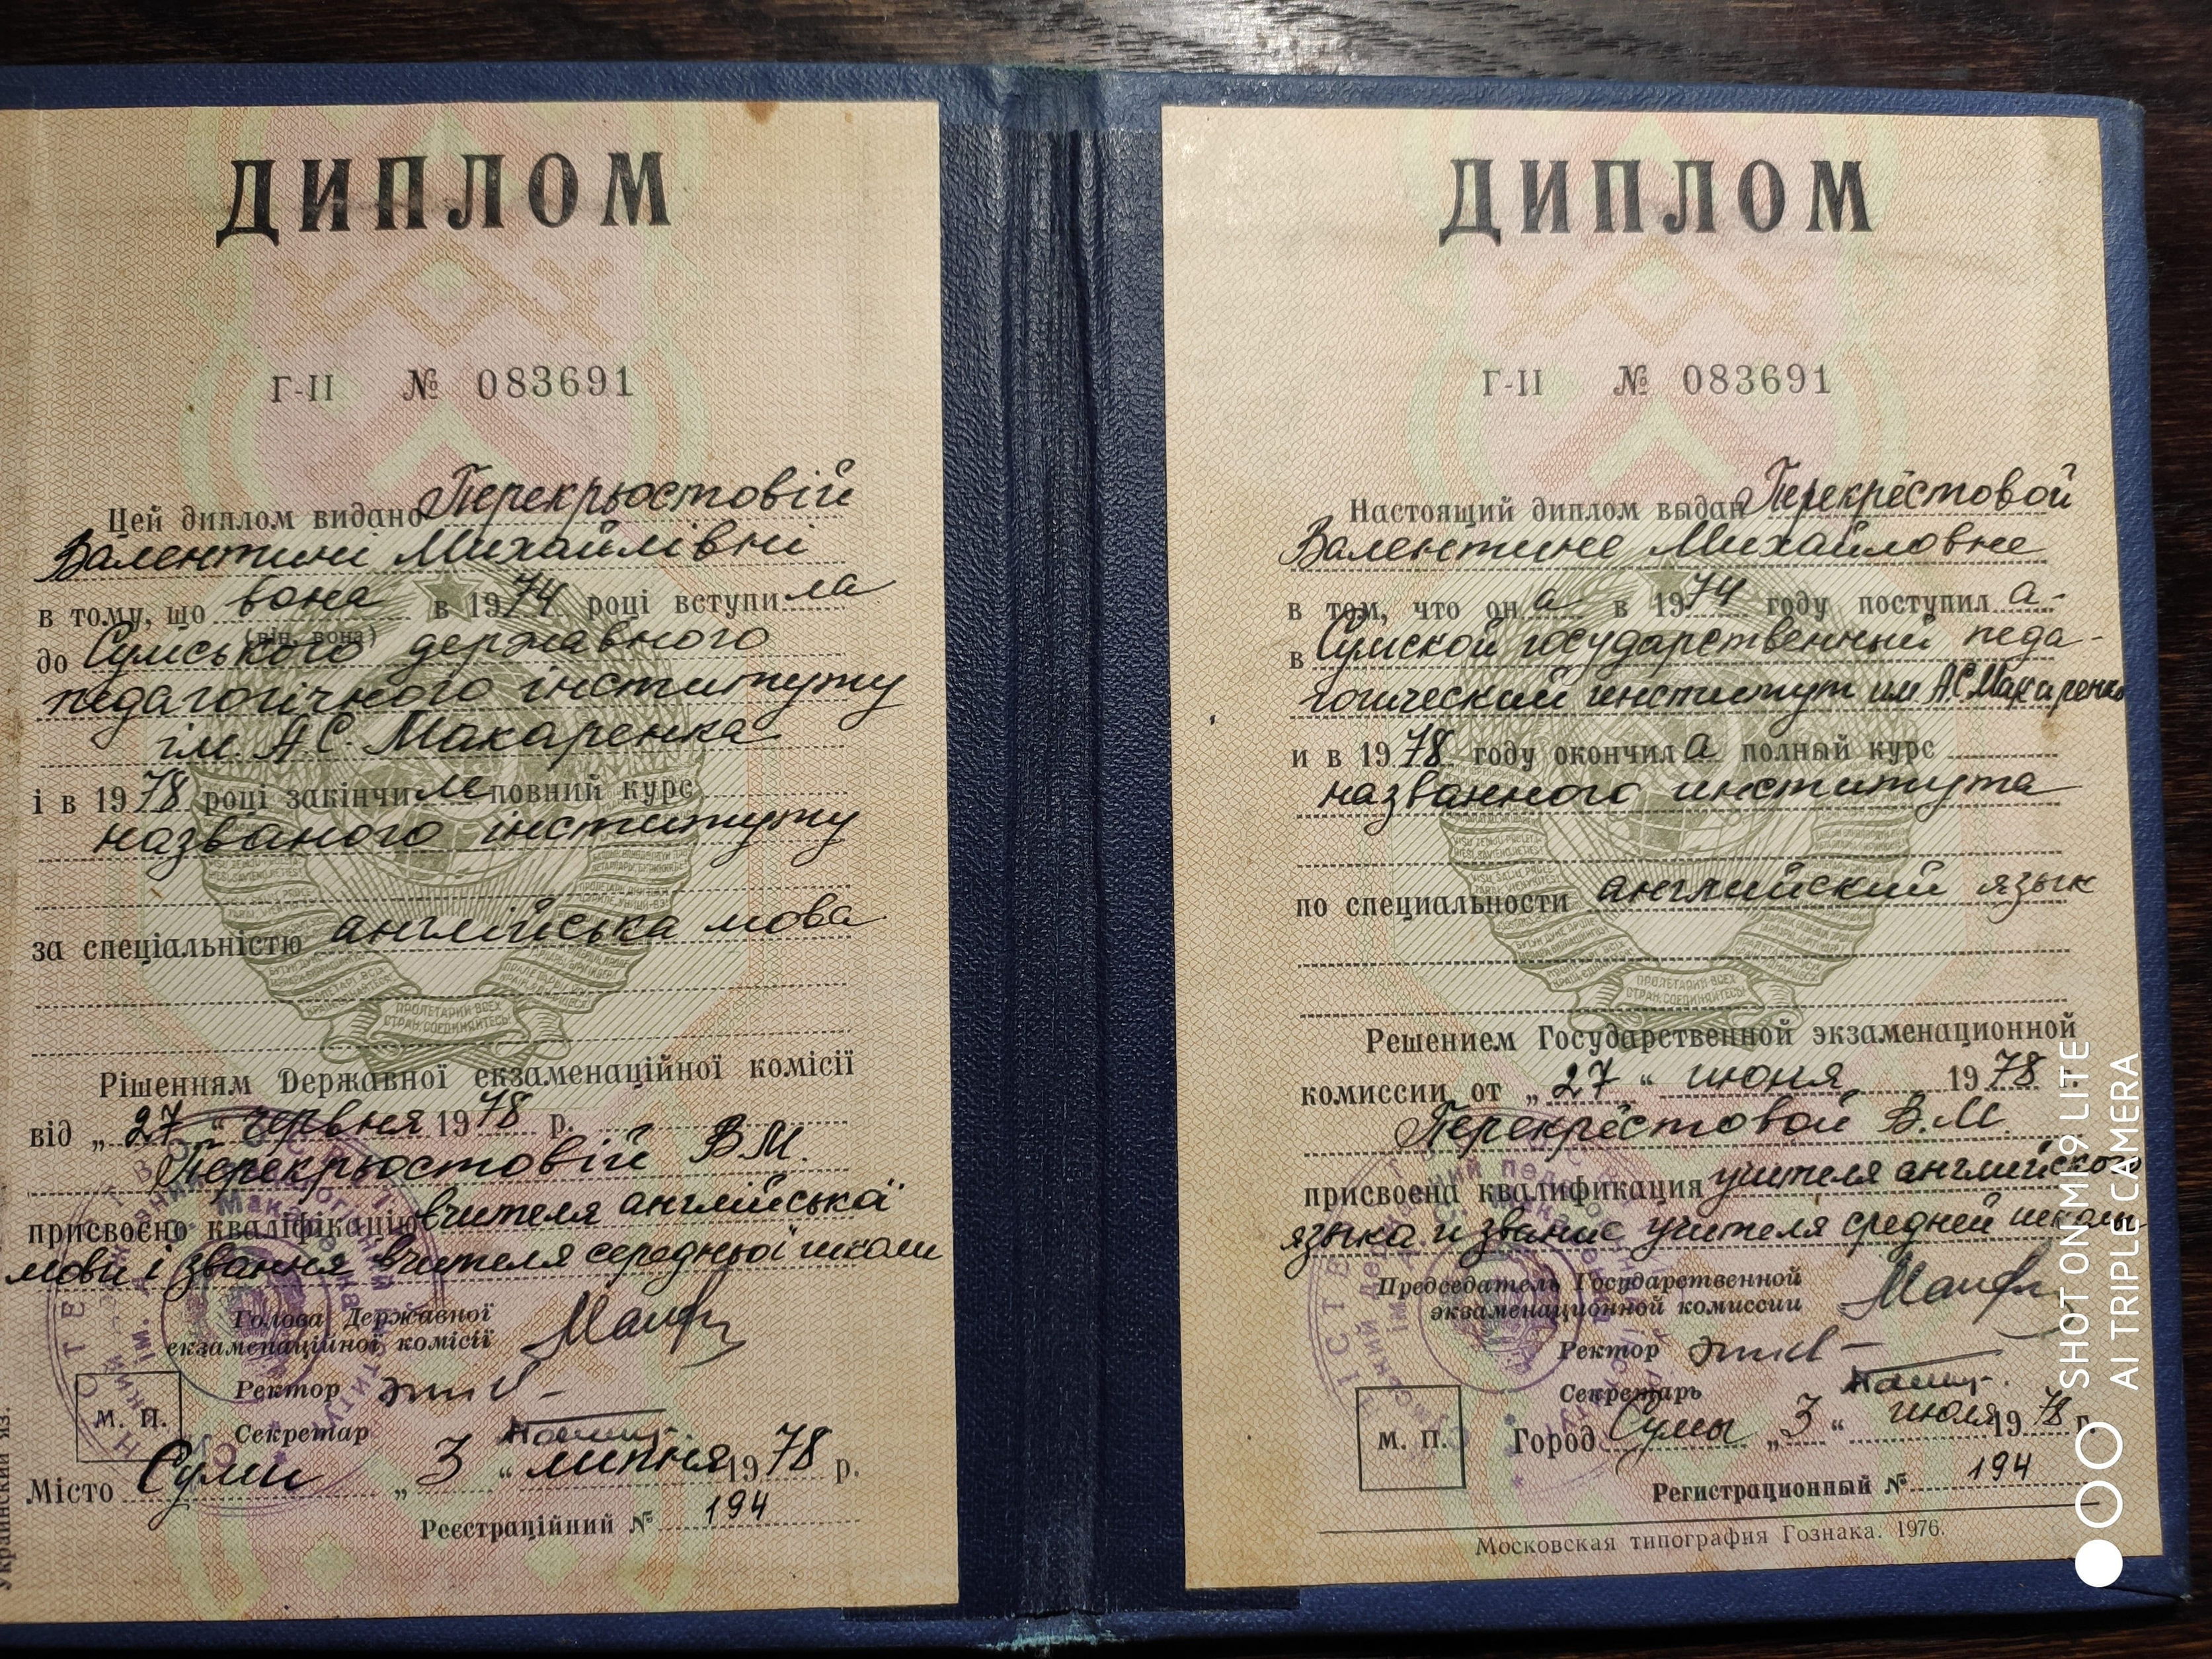 ДИПЛОМ
Г-II № 083691
Цей диплом видано Перекрьостовій
Валентині Михайлівні
в тому, що вона в 1974 році вступила
(він, вона)
до Сумського державного
педагогічного інституту
ім. А.С. Макаренка
і в 1978 році закінчила повний курс
названого інституту
за спеціальністю англійська мова
Рішенням Державної екзаменаційної комісії
від „27“ червня 1978 р.
Перекрьостовій В.М.
присвоєно кваліфікацію вчителя англійської
мови і звання вчителя середньої школи
Голова Державної
екзаменаційної комісії
Ректор
Секретар
М. П.
Місто Суми „3“ липня 1978 р.
Реєстраційний № 194
Украинский яз.
ДИПЛОМ
Г-II № 083691
Настоящий диплом выдан Перекрёстовой
Валентине Михайловне
в том, что она в 1974 году поступила
в Сумской государственный педа-
гогический институт им А С Макаренко
и в 1978 году окончила полный курс
названного института
по специальности английский язык
Решением Государственной экзаменационной
комиссии от „27“ июня 1978
Перекрёстовой В.М.
присвоена квалификация учителя английского
языка и звание учителя средней школы
Председатель Государственной
экзаменационной комиссии
Ректор
Секретарь
М. П.
Город Сумы „3“ июля 1978 г.
Регистрационный № 194
Московская типография Гознака. 1976.
SHOT ON MI 9 LITE
AI TRIPLE CAMERA